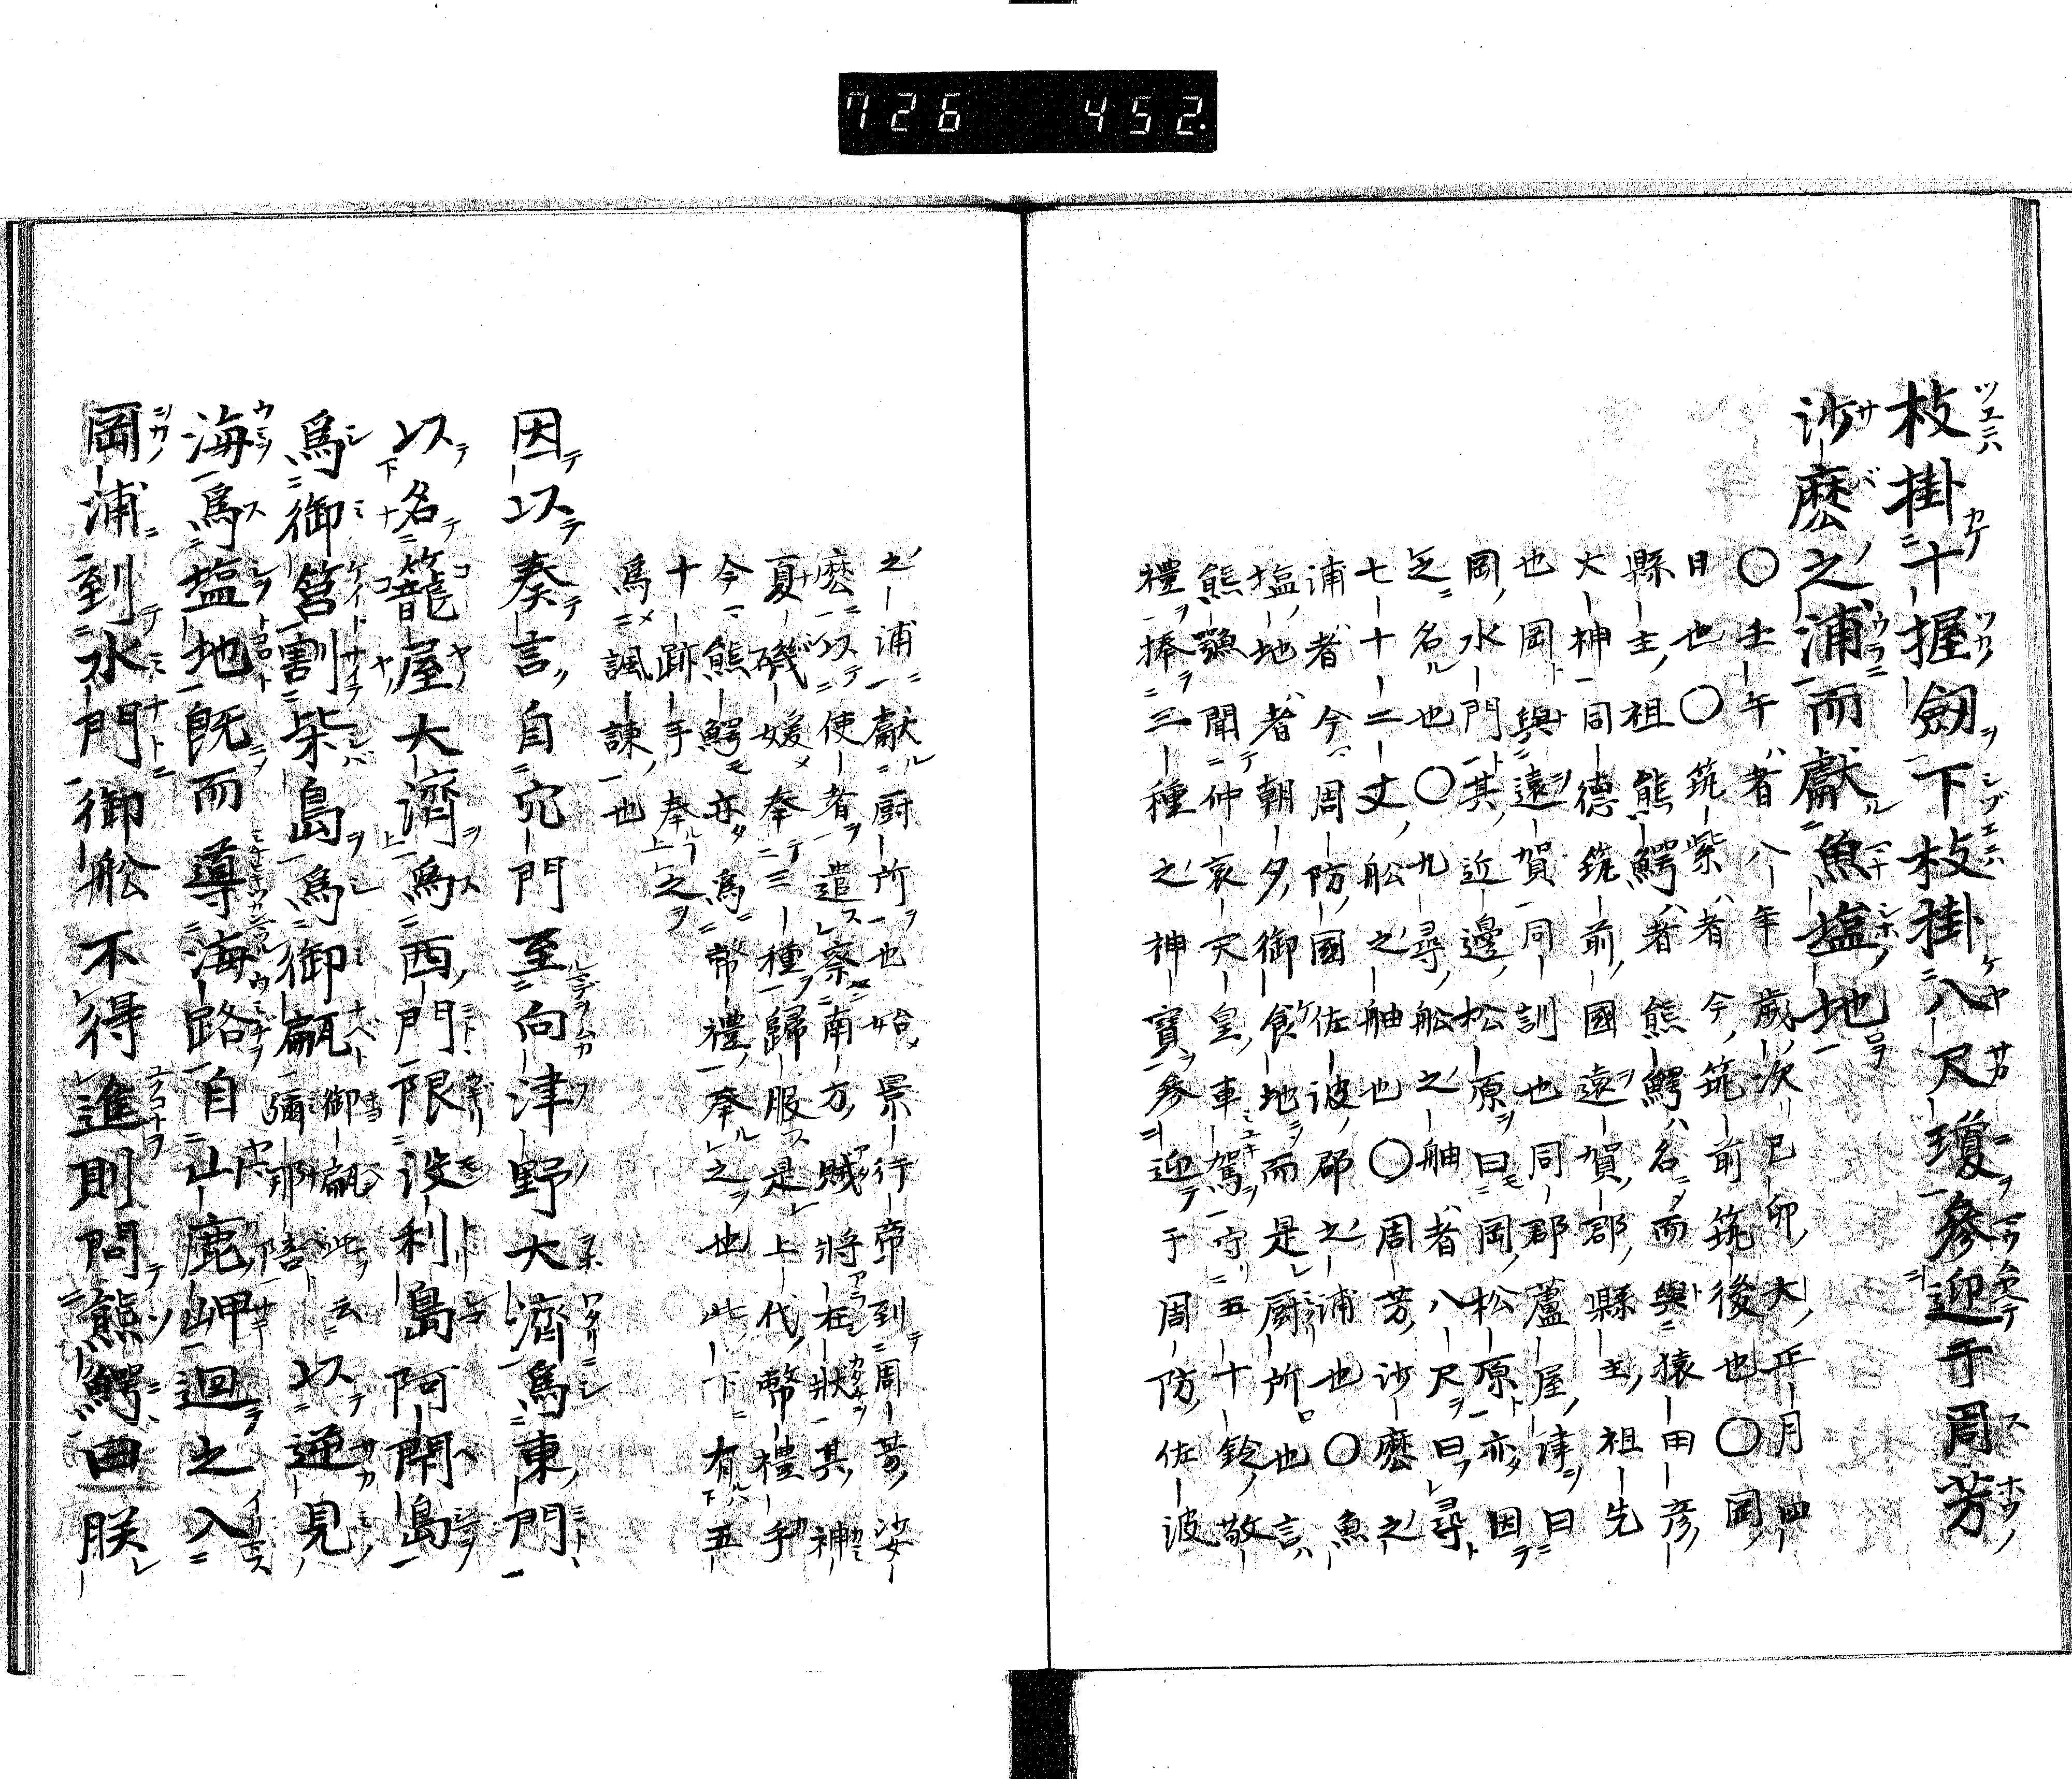 726 452.
枝掛十握劒下枝掛八尺瓊參迎于周芳
沙麼之浦而獻魚塩地
○壬午者八年歳次己卯大正月四
日也○筑紫者今筑前筑後也○岡
縣主祖熊鰐者熊鰐名而與猿田彦
大神同德筑前國遠賀郡縣主祖先
也岡與遠賀同訓也同郡蘆屋津曰
岡水門其近邊松原曰岡松原亦因
之名也○九尋舩之舳者八尺曰尋
七十二丈舩之舳也○周芳沙麼之
浦者今周防國佐波郡之浦也○魚
塩地者朝夕御食地而是厨所也言
熊鰐聞仲哀天皇車駕守五十鈴敬
禮捧三種之神寶參迎于周防佐波
之浦獻厨所也始景行帝到周芳娑
麼以使者遣察南方賊將在狀其神
夏磯媛奉三種歸服是上代幣禮乎
今熊鰐亦為幣禮奉之也此下有五
十跡手奉之
為諷諫也
因以奏言自穴門至向津野大濟為東門
以名籠屋大濟為西門限没利島阿閇島
為御筥割柴島為御甂御甂此云彌那陪以逆見
海為塩地既而導海路自山鹿岬迴之入
岡浦到水門御舩不得進則問熊鰐曰朕